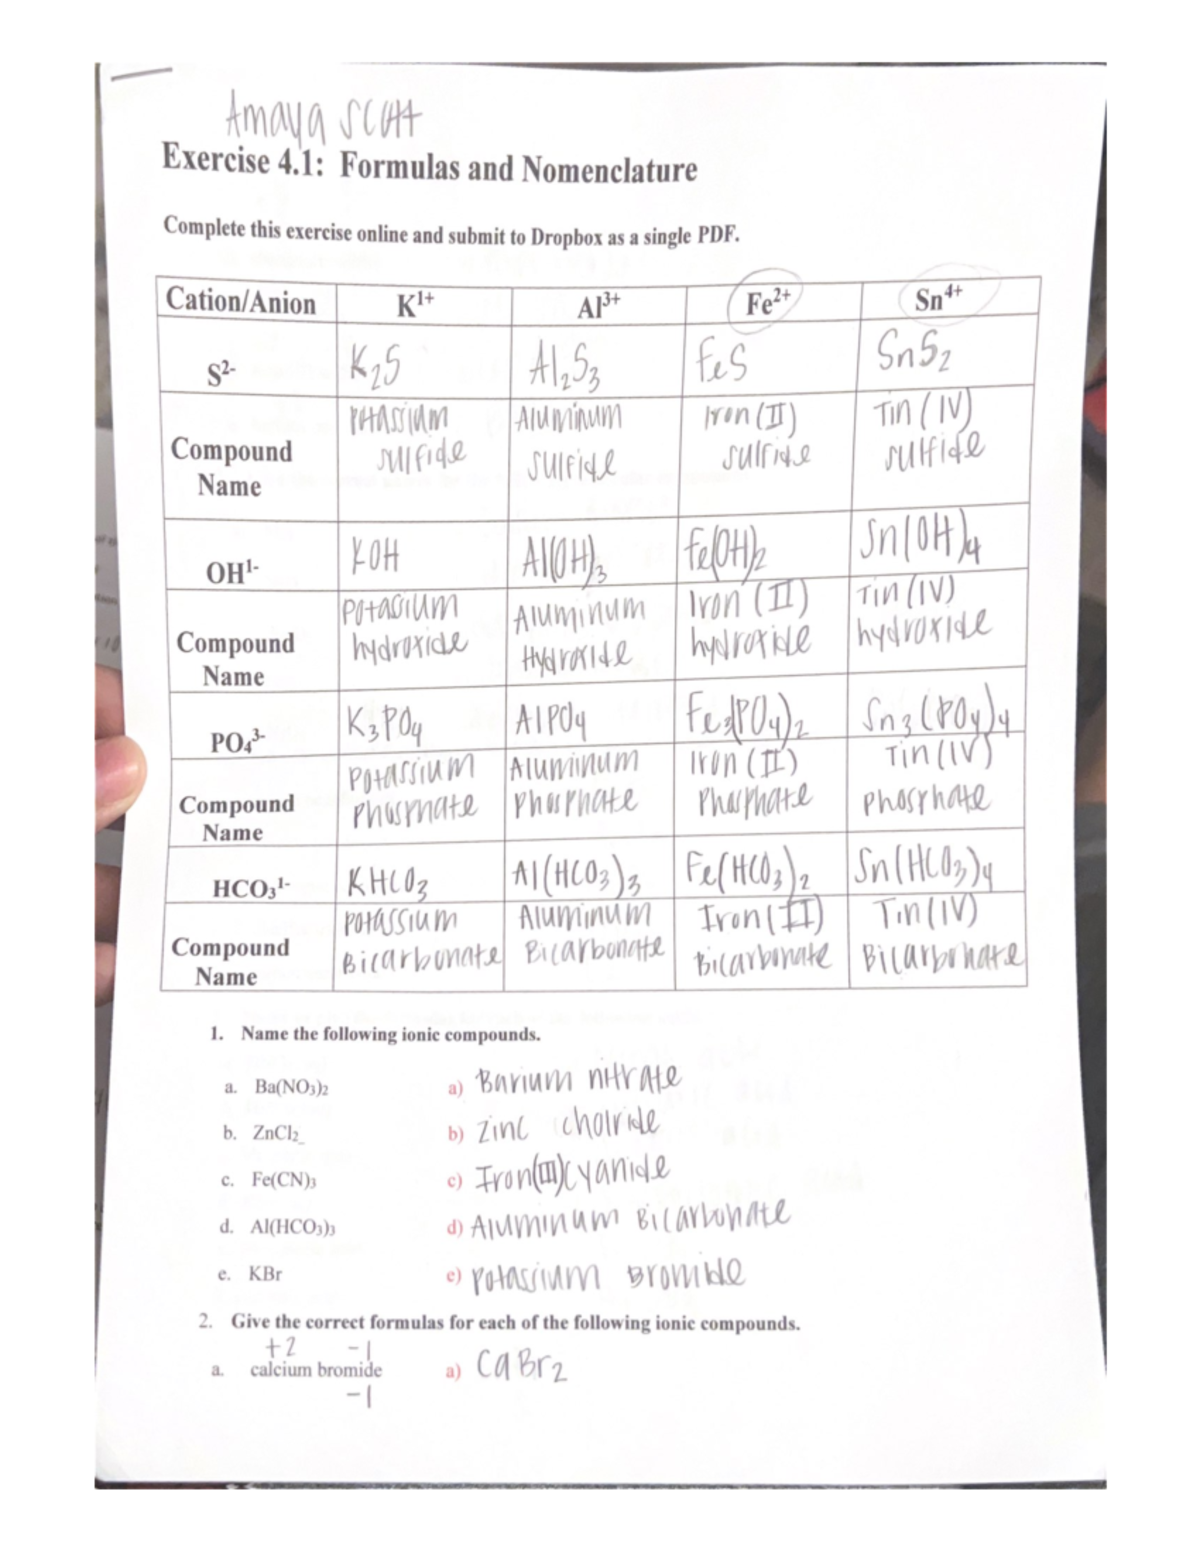 Amaya Scott
Exercise 4.1: Formulas and Nomenclature
Complete this exercise online and submit to Dropbox as a single PDF.
Cation/Anion K¹⁺ Al³⁺ Fe²⁺ Sn⁴⁺
S²⁻ K₂S Al₂S₃ FeS SnS₂
Compound Name
Potassium sulfide
Aluminum sulfide
Iron (II) sulfide
Tin (IV) sulfide
OH¹⁻ KOH Al(OH)₃ Fe(OH)₂ Sn(OH)₄
Compound Name
Potassium hydroxide
Aluminum Hydroxide
Iron (II) hydroxide
Tin (IV) hydroxide
PO₄³⁻ K₃PO₄ AlPO₄ Fe₃(PO₄)₂ Sn₃(PO₄)₄
Compound Name
Potassium Phosphate
Aluminum Phosphate
Iron (II) Phosphate
Tin (IV) Phosphate
HCO₃¹⁻ KHCO₃ Al(HCO₃)₃ Fe(HCO₃)₂ Sn(HCO₃)₄
Compound Name
Potassium Bicarbonate
Aluminum Bicarbonate
Iron (II) Bicarbonate
Tin (IV) Bicarbonate
1. Name the following ionic compounds.
a. Ba(NO₃)₂ a) Barium nitrate
b. ZnCl₂_ b) Zinc cholride
c. Fe(CN)₃ c) Iron(III)cyanide
d. Al(HCO₃)₃ d) Aluminum Bicarbonate
e. KBr e) Potassium Bromide
2. Give the correct formulas for each of the following ionic compounds.
+2 -1
a. calcium bromide a) CaBr₂
-1